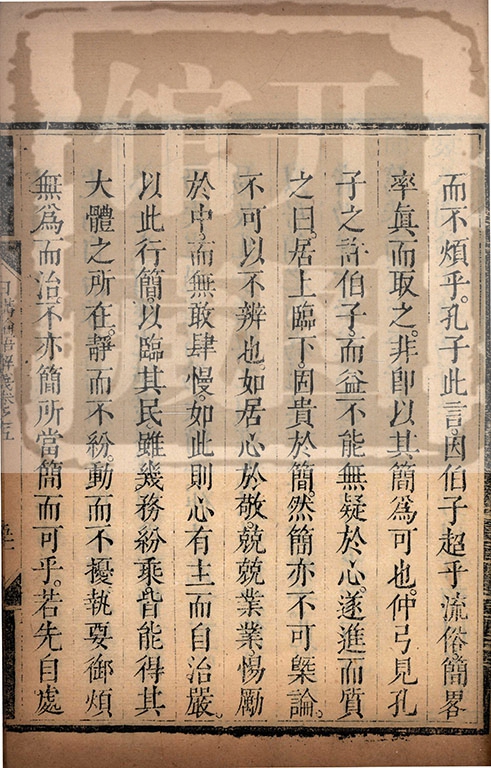 而不煩乎。孔子此言。因伯子超乎流俗。簡畧
率眞而取之。非即以其簡爲可也。仲弓見孔
子之許伯子。而益不能無疑於心。遂進而質
之曰。居上臨下。固貴於簡。然簡亦不可槩論。
不可以不辨也。如居心於敬。兢兢業業惕厲
於中。而無敢肆慢。如此則心有主而自治嚴。
以此行簡。以臨其民。雖幾務紛乘。皆能得其
大體之所在。靜而不紛。動而不擾。執要御煩
無爲而治。不亦簡所當簡而可乎。若先自處
日講四書解義卷之五